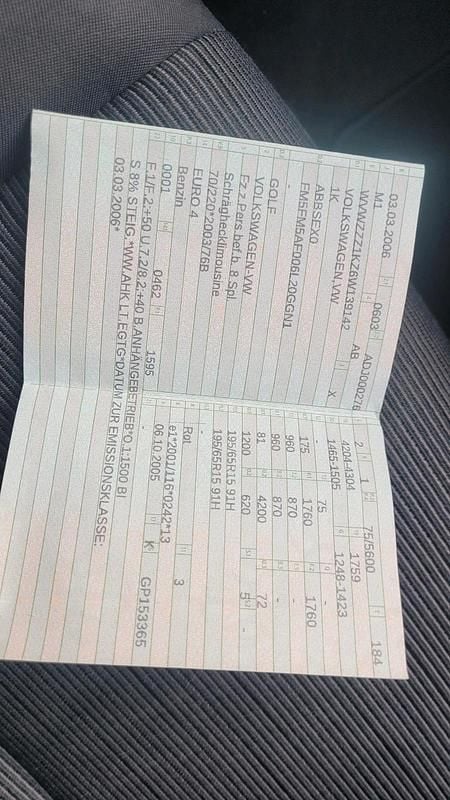 03.03.2006 0603 ADJ000276
M1
WVWZZZ1KZ6W139142 AB
VOLKSWAGEN,VW X
1K
ABBSEX0
FM5FM5AF006L20GGN1
-
GOLF
VOLKSWAGEN-VW
Fz.z.Pers.bef.b. 8 Spl.
Schräghecklimousine
70/220*2003/76B
EURO 4
Benzin
0001 0462 1595
2 1 75/5600 184
4204-4304 1759
1465-1505 1248-1423
- 75
175 1760 1760
960 870 -
960 870 -
81 4200 72
1200 620 5 -
195/65R15 91H
195/65R15 91H
-
Rot 3
e1*2001/116*0242*13
06.10.2005 K GP153365
F.1/F.2:+50 U.7.2/8.2:+40 B.ANHÄNGEBETRIEB*O.1:1500 BI
S 8% STEIG.*WW.AHK LT.EGTG*DATUM ZUR EMISSIONSKLASSE:
03.03.2006*